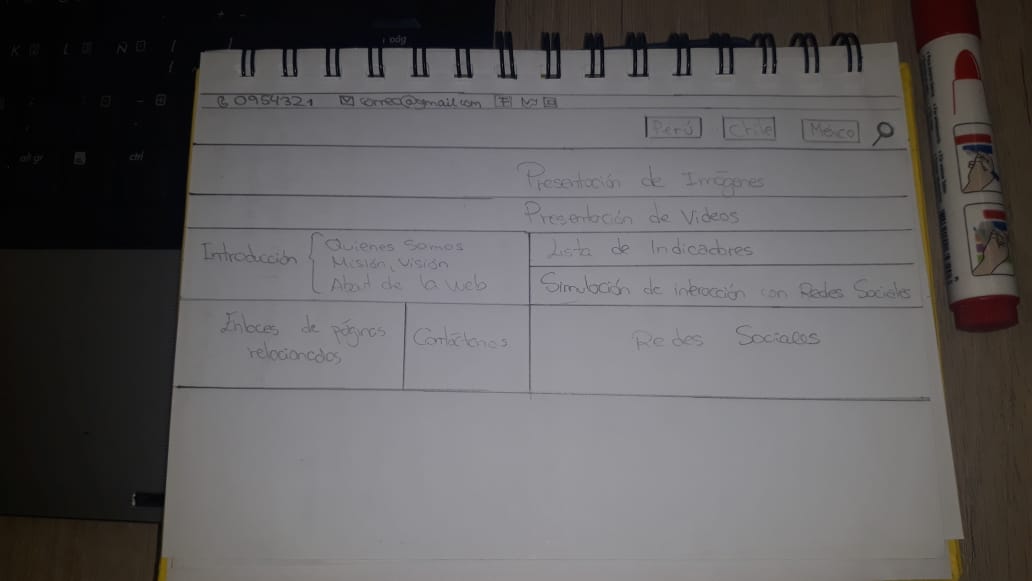 0954321 correo@gmail.com
Perú Chile México
Presentación de Imágenes
Presentación de Videos
Introducción
Quienes Somos
Misión, Visión
About de la web
Lista de Indicadores
Simulación de interacción con Redes Sociales
Enlaces de páginas
relacionados
Contáctanos
Redes Sociales
K L Ñ
alt gr ctrl